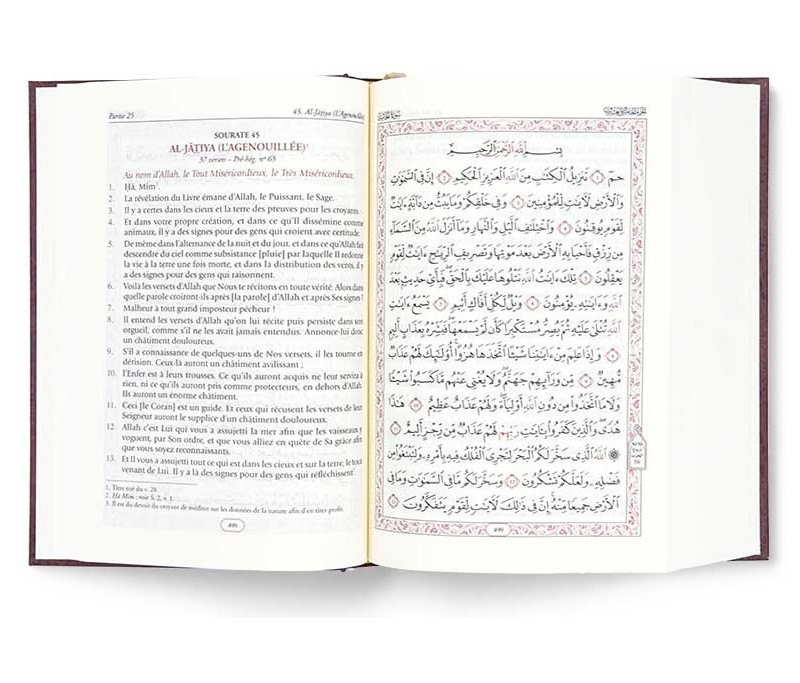 Partie 25
45. Al-Jāṯiya (L'Agenouillée)
SOURATE 45
AL-JĀṮIYA (L'AGENOUILLÉE)¹
37 versets – Pré-hég. n° 65
Au nom d'Allah, le Tout Miséricordieux, le Très Miséricordieux.
1. Ḥā, Mīm².
2. La révélation du Livre émane d'Allah, le Puissant, le Sage.
3. Il y a certes dans les cieux et la terre des preuves pour les croyants.
4. Et dans votre propre création, et dans ce qu'Il dissémine comme
animaux, il y a des signes pour des gens qui croient avec certitude.
5. De même dans l'alternance de la nuit et du jour, et dans ce qu'Allah fait
descendre du ciel comme subsistance [pluie] par laquelle Il redonne
la vie à la terre une fois morte, et dans la distribution des vents, il y
a des signes pour des gens qui raisonnent.
6. Voilà les versets d'Allah que Nous te récitons en toute vérité. Alors dans
quelle parole croiront-ils après [la parole] d'Allah et après Ses signes !
7. Malheur à tout grand imposteur pécheur !
8. Il entend les versets d'Allah qu'on lui récite puis persiste dans son
orgueil, comme s'il ne les avait jamais entendus. Annonce-lui donc
un châtiment douloureux.
9. S'il a connaissance de quelques-uns de Nos versets, il les tourne en
dérision. Ceux-là auront un châtiment avilissant ;
10. l'Enfer est à leurs trousses. Ce qu'ils auront acquis ne leur servira à
rien, ni ce qu'ils auront pris comme protecteurs, en dehors d'Allah.
Ils auront un énorme châtiment.
11. Ceci [le Coran] est un guide. Et ceux qui récusent les versets de leur
Seigneur auront le supplice d'un châtiment douloureux.
12. Allah c'est Lui qui vous a assujetti la mer afin que les vaisseaux y
voguent, par Son ordre, et que vous alliez en quête de Sa grâce afin
que vous soyez reconnaissants.
13. Et Il vous a assujetti tout ce qui est dans les cieux et sur la terre, le tout
venant de Lui. Il y a là des signes pour des gens qui réfléchissent³.
1. Titre tiré du v. 28.
2. Ḥā Mīm : voir S. 2, v. 1.
3. Il est du devoir du croyant de méditer sur les données de la nature afin d'en tirer profit.
499
بِسْمِ اللَّهِ الرَّحْمَٰنِ الرَّحِيمِ
حمٓ ١ تَنزِيلُ الْكِتَٰبِ مِنَ اللَّهِ الْعَزِيزِ الْحَكِيمِ ٢ إِنَّ فِي السَّمَٰوَٰتِ
وَالْأَرْضِ لَءَايَٰتٍ لِّلْمُؤْمِنِينَ ٣ وَفِي خَلْقِكُمْ وَمَا يَبُثُّ مِن دَآبَّةٍ ءَايَٰتٌ
لِّقَوْمٍ يُوقِنُونَ ٤ وَاخْتِلَٰفِ اللَّيْلِ وَالنَّهَارِ وَمَآ أَنزَلَ اللَّهُ مِنَ السَّمَآءِ
مِن رِّزْقٍ فَأَحْيَا بِهِ الْأَرْضَ بَعْدَ مَوْتِهَا وَتَصْرِيفِ الرِّيَٰحِ ءَايَٰتٌ لِّقَوْمٍ
يَعْقِلُونَ ٥ تِلْكَ ءَايَٰتُ اللَّهِ نَتْلُوهَا عَلَيْكَ بِالْحَقِّ فَبِأَيِّ حَدِيثٍ بَعْدَ
اللَّهِ وَءَايَٰتِهِ يُؤْمِنُونَ ٦ وَيْلٌ لِّكُلِّ أَفَّاكٍ أَثِيمٍ ٧ يَسْمَعُ ءَايَٰتِ
اللَّهِ تُتْلَىٰ عَلَيْهِ ثُمَّ يُصِرُّ مُسْتَكْبِرًا كَأَن لَّمْ يَسْمَعْهَا فَبَشِّرْهُ بِعَذَابٍ أَلِيمٍ
٨ وَإِذَا عَلِمَ مِنْ ءَايَٰتِنَا شَيْئًا اتَّخَذَهَا هُزُوًا أُو۟لَٰٓئِكَ لَهُمْ عَذَابٌ
مُّهِينٌ ٩ مِّن وَرَآئِهِمْ جَهَنَّمُ وَلَا يُغْنِي عَنْهُم مَّا كَسَبُوا شَيْئًا
وَلَا مَا اتَّخَذُوا مِن دُونِ اللَّهِ أَوْلِيَآءَ وَلَهُمْ عَذَابٌ عَظِيمٌ ١٠ هَٰذَا
هُدًى وَالَّذِينَ كَفَرُوا بِءَايَٰتِ رَبِّهِمْ لَهُمْ عَذَابٌ مِّن رِّجْزٍ أَلِيمٌ ١١
۞ اللَّهُ الَّذِي سَخَّرَ لَكُمُ الْبَحْرَ لِتَجْرِيَ الْفُلْكُ فِيهِ بِأَمْرِهِ وَلِتَبْتَغُوا مِن
فَضْلِهِ وَلَعَلَّكُمْ تَشْكُرُونَ ١٢ وَسَخَّرَ لَكُم مَّا فِي السَّمَٰوَٰتِ وَمَا فِي
الْأَرْضِ جَمِيعًا مِّنْهُ إِنَّ فِي ذَٰلِكَ لَءَايَٰتٍ لِّقَوْمٍ يَتَفَكَّرُونَ ١٣
499